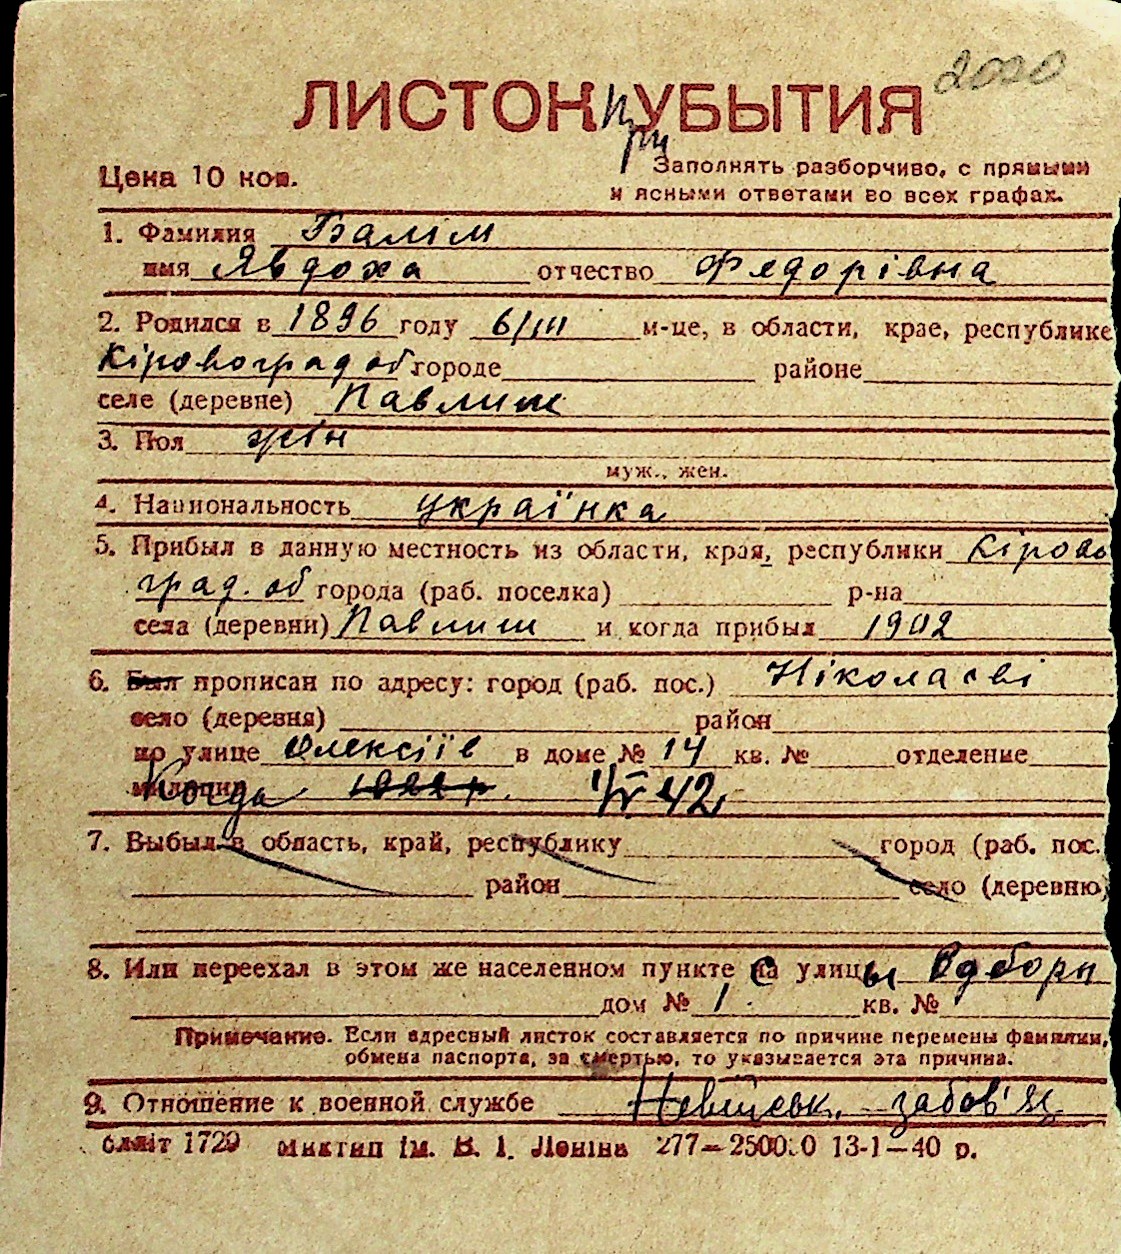 2020
ЛИСТОК при УБЫТИЯ
Цена 10 коп.
Заполнять разборчиво, с прямыми
и ясными ответами во всех графах.
1. Фамилия Балім
имя Явдоха отчество Федорівна
2. Родился в 1896 году 6/III м-це, в области, крае, республике
Кіровоград об городе районе
селе (деревне) Павлиш
3. Пол жін
муж., жен.
4. Национальность українка
5. Прибыл в данную местность из области, края, республики Кірово
град. об города (раб. поселка) р-на
села (деревни) Павлиш и когда прибыл 1902
6. Был прописан по адресу: город (раб. пос.) Ніколаєві
село (деревня) район
по улице Олексіїв в доме № 14 кв. № отделение
милиции Когда 1922 р. 1/IV 42
7. Выбыл в область, край, республику город (раб. пос.
район село (деревню)
8. Или переехал в этом же населенном пункте с улицы
дом № 1 кв. №
Примечание. Если адресный листок составляется по причине перемены фамилии,
обмена паспорта, за смертью, то указывается эта причина.
9. Отношение к военной службе Невійськ. забов'яз
1729 ім. В. І. Леніна 277—250000 13-1—40 р.